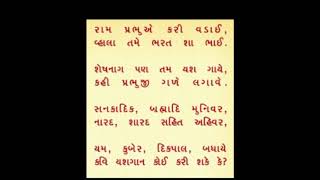 રામ પ્રભુએ કરી વડાઈ,
વ્હાલા તમે ભરત શા ભાઈ.
શેષનાગ પણ તમ યશ ગાયે,
કહી પ્રભુજી ગળે લગાવે.
સનકાદિક, બ્રહ્માદિ મુનિવર,
નારદ, શારદ સહિત અહિવર,
યમ, કુબેર, દિકપાલ, બધાયે
કવિ યશગાન કોઈ કરી શકે કે?